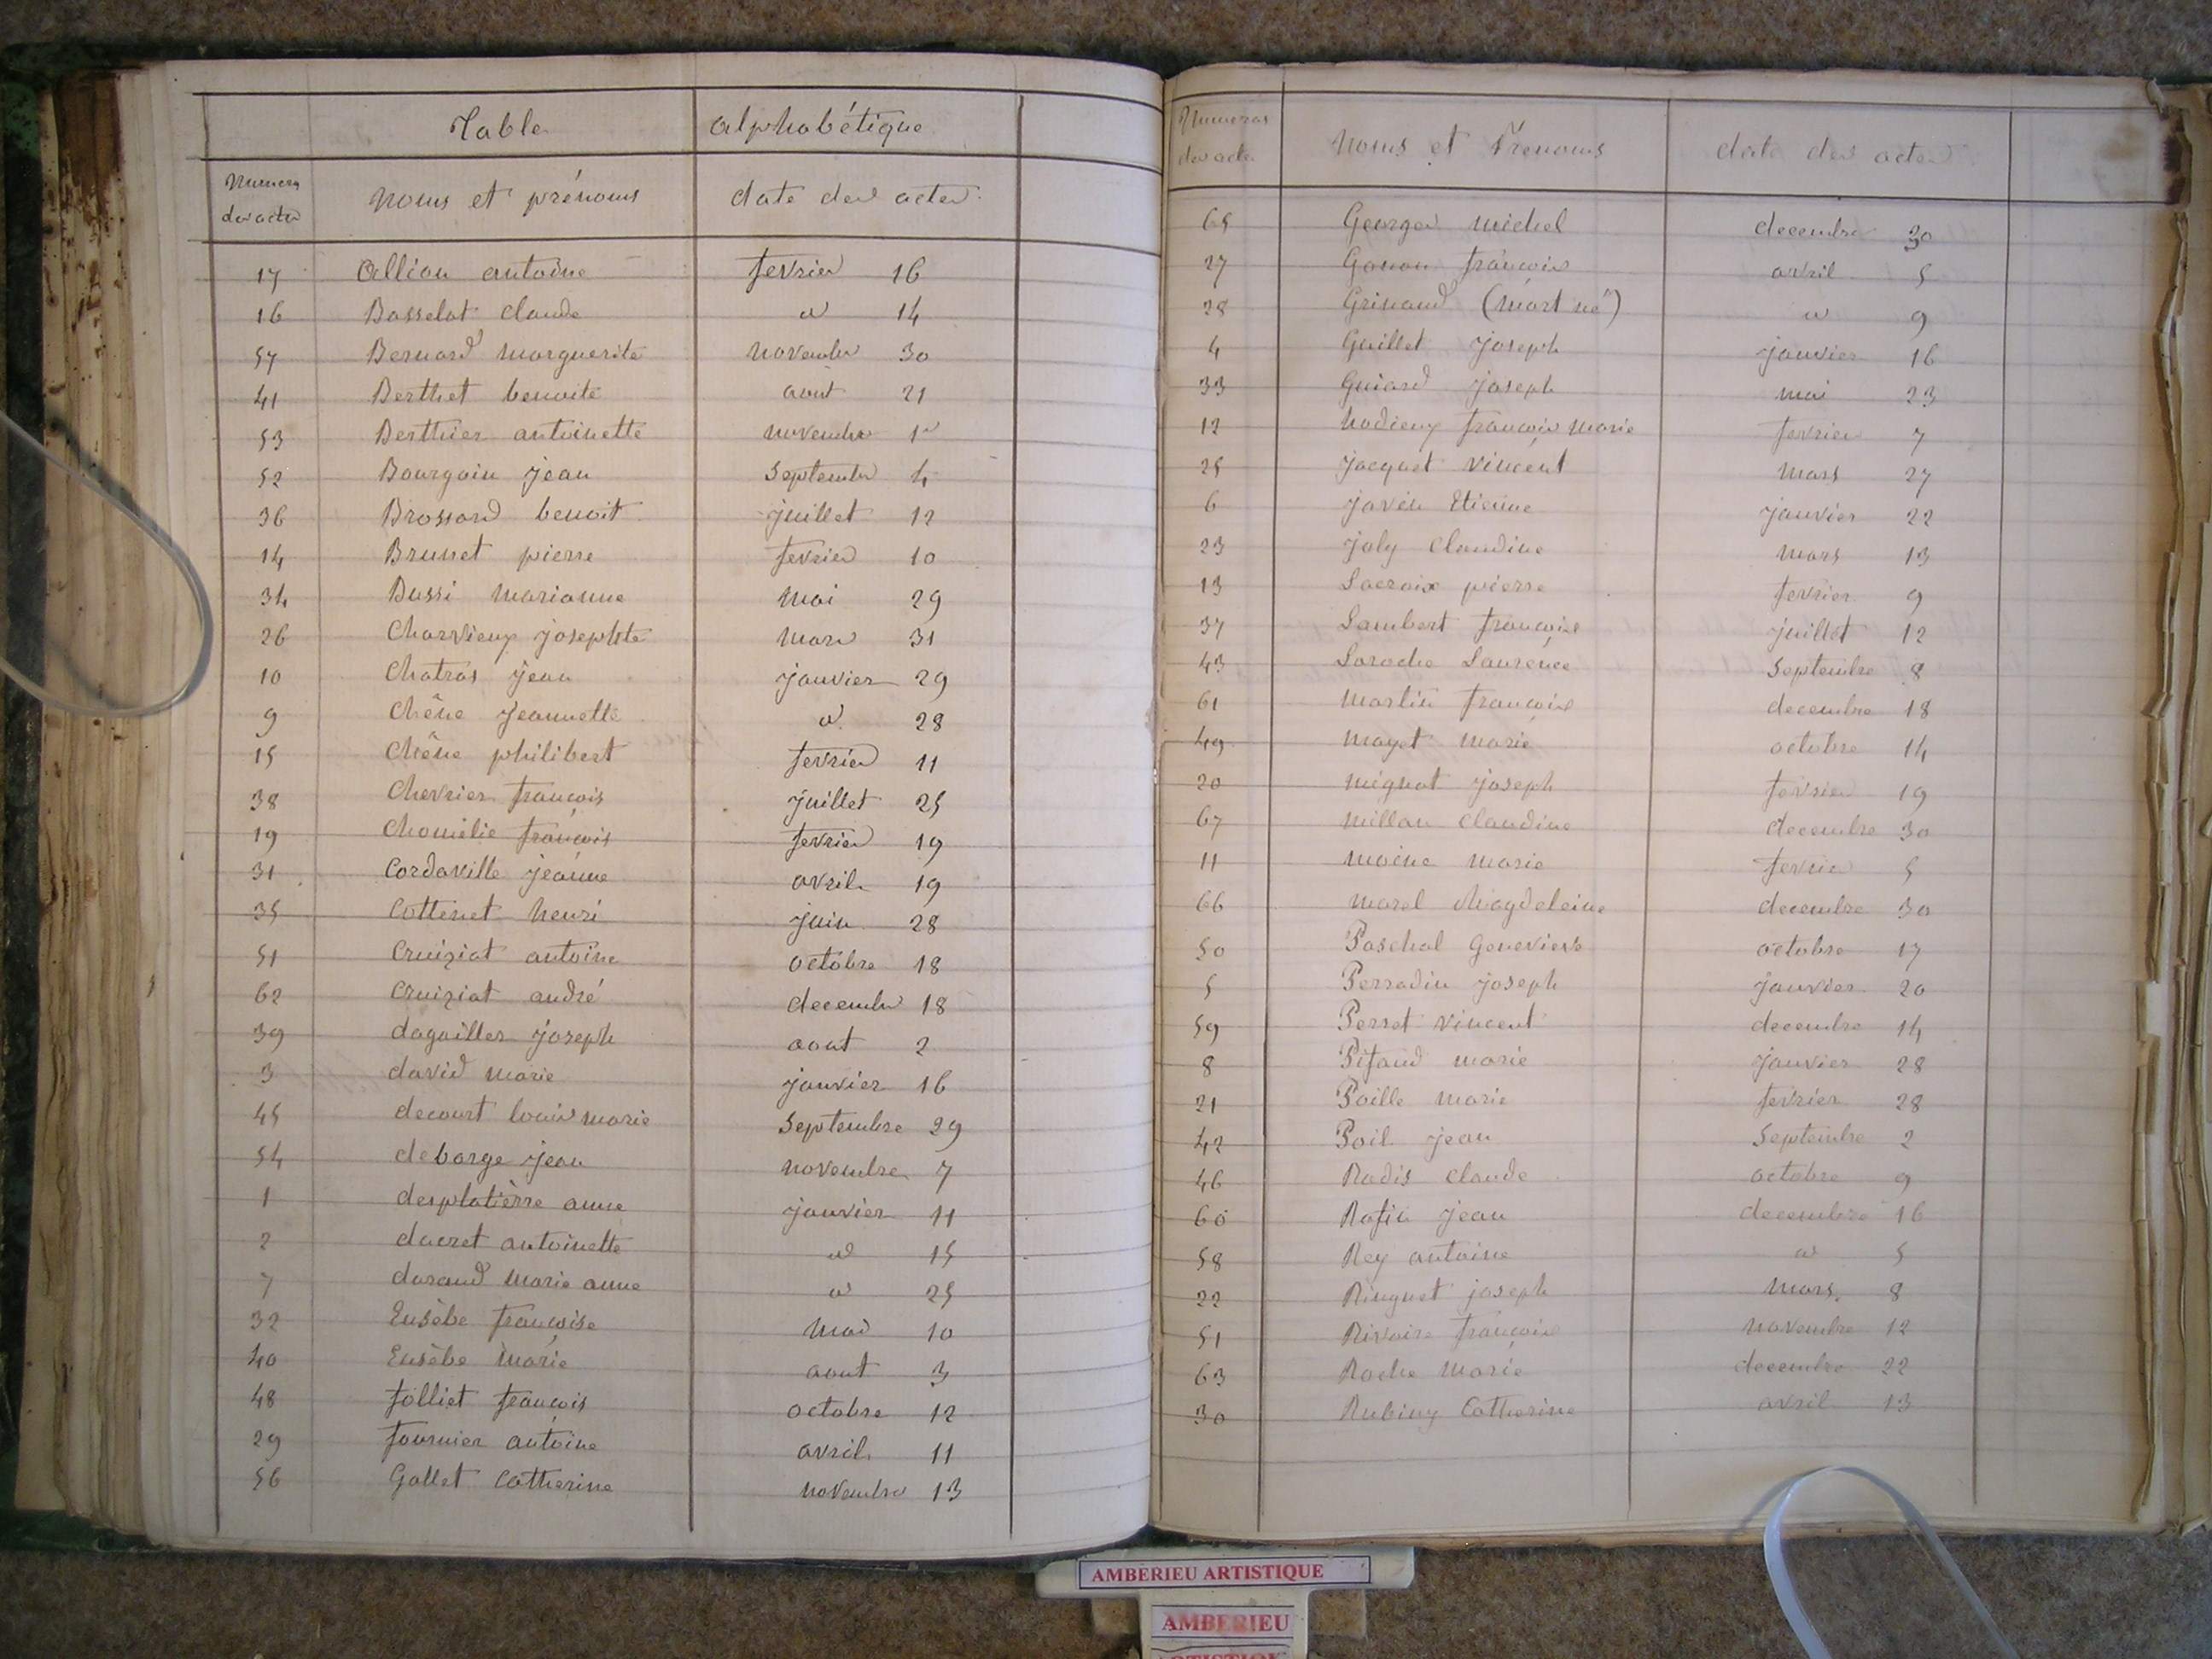 Table alphabétique
Numeros des actes Noms et prénoms date des actes
17 Allion antoine fevrier 16
16 Basselat claude id 14
57 Bernard marguerite novembre 30
41 Berthet benoite aout 21
53 Berthier antoinette novembre 1er
52 Bourgoin jean Septembre 4
36 Brossard benoit juillet 12
14 Brunet pierre fevrier 10
34 Bussi marianne mai 29
26 Charvieux josephte mars 31
10 Chatras jean janvier 29
9 Chêne jeannette id 28
15 Chêne philibert fevrier 11
38 Chevrier francois juillet 25
19 Chomelie francois fevrier 19
31 Cordaville jeanne avril 19
35 Cottinet henri juin 28
51 Cruiziat antoine octobre 18
62 Cruiziat andré decembre 18
39 dagaillier joseph aout 2
3 david marie janvier 16
45 decourt louis marie Septembre 29
54 deborge jean novembre 7
1 desplatierre anne janvier 11
2 ducret antoinette id 15
7 durand marie anne id 25
32 Eusèbe francoise mai 10
40 Eusèbe marie aout 3
48 folliet francois octobre 12
29 fournier antoine avril 11
56 Gallet Catherine novembre 13
Numeros des actes Noms et Prénoms date des actes
65 Georges michel decembre 30
27 Gonon francois avril 5
28 Grinand (mort né) id 9
4 Guillet joseph janvier 16
33 Guiard joseph mai 23
12 hodieux francois marie fevrier 7
25 jacquet vincent mars 27
6 javin Etienne janvier 22
23 joly claudine mars 13
13 Lacroix pierre fevrier 9
37 Lambert francoise juillet 12
43 Laroche Laurence Septembre 8
61 martin francoise decembre 18
49 mayet marie octobre 14
20 mignot joseph fevrier 19
67 millan claudine decembre 30
11 moine marie fevrier 5
66 morel Magdeleine decembre 30
50 Paschal Genevieve octobre 17
5 Perradin joseph janvier 20
59 Perret vincent decembre 14
8 Pifaud marie janvier 28
21 Poille marie fevrier 28
42 Poil jean Septembre 2
46 Radis claude octobre 9
60 Rafin jean decembre 16
58 Rey antoine id 5
22 Ringuet joseph mars 8
51 Rivoire francois novembre 12
63 Roche marie decembre 22
30 Rubieux Catherine avril 13
AMBERIEU ARTISTIQUE
AMBERIEU
ARTISTIQUE